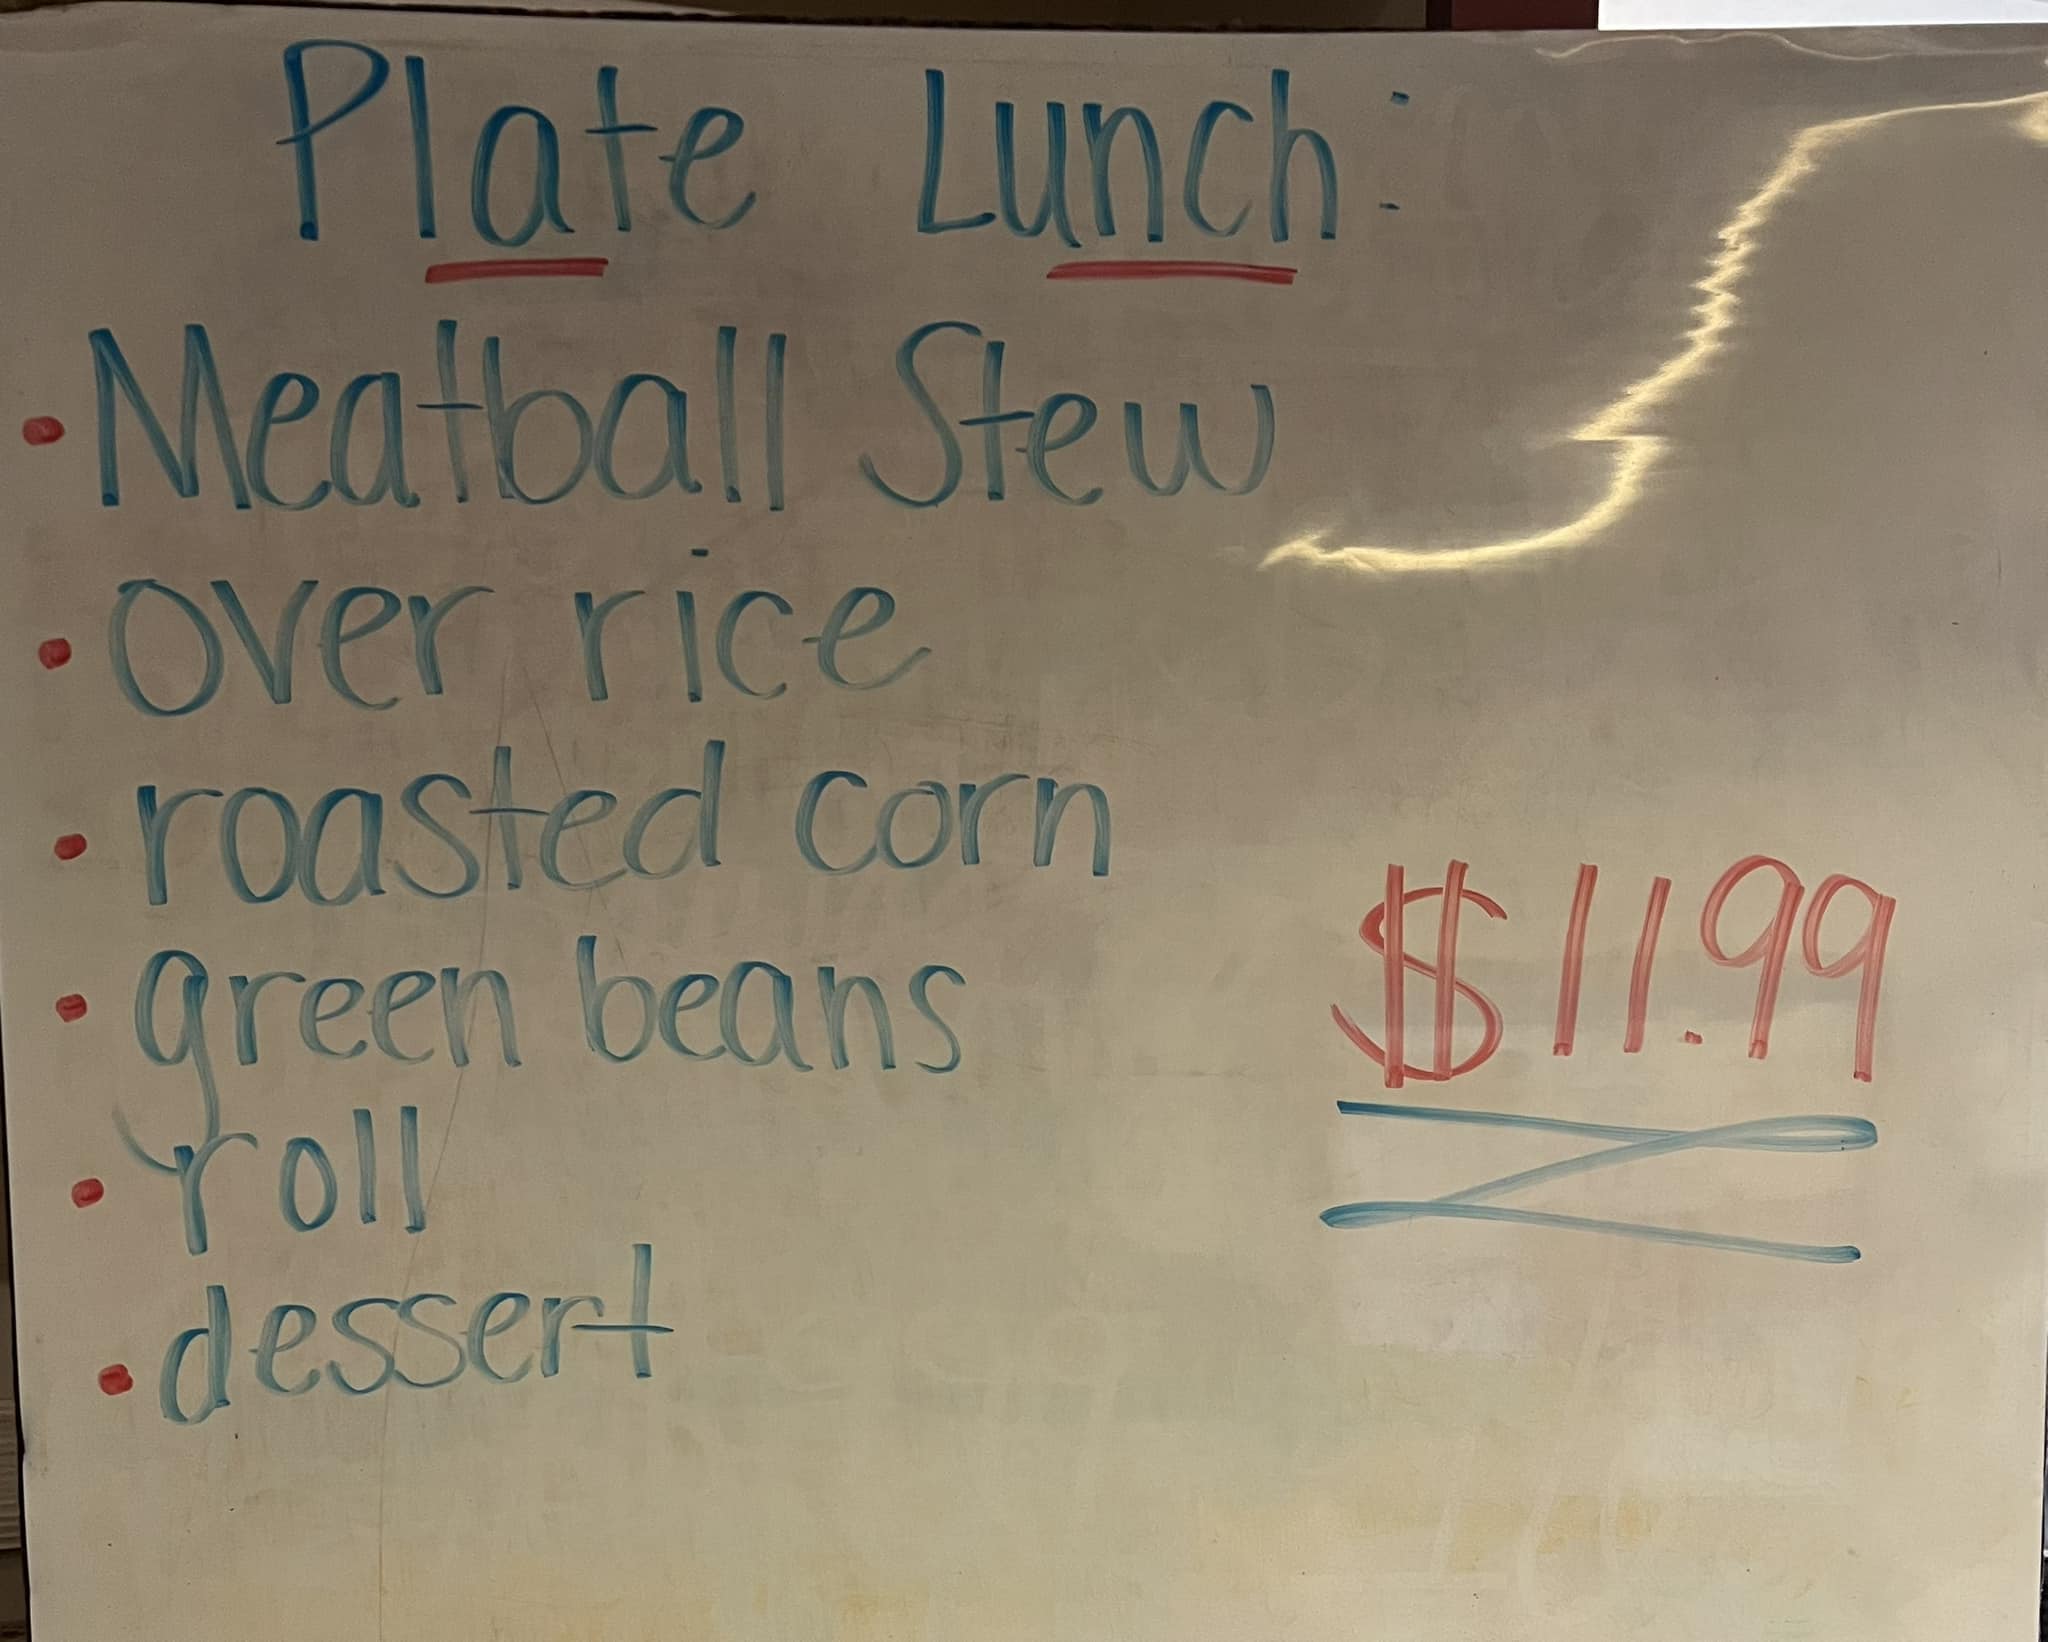 Plate Lunch:
• Meatball Stew
• over rice
• roasted corn
• green beans
• roll
• dessert
$11.99